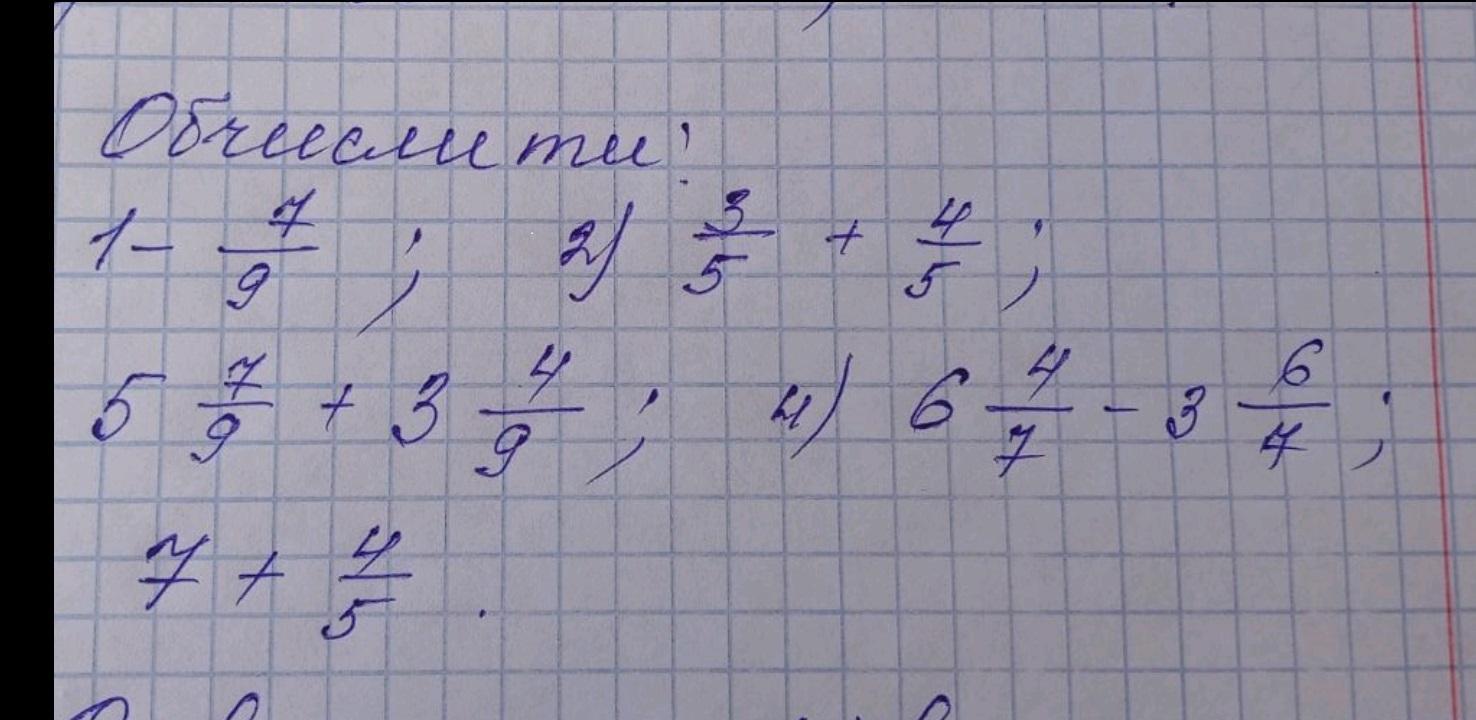 Обчислити:
1 - 7/9 ; 2) 3/5 + 4/5 ;
5 7/9 + 3 4/9 ; 4) 6 4/7 - 3 6/7 ;
7 + 4/5 .